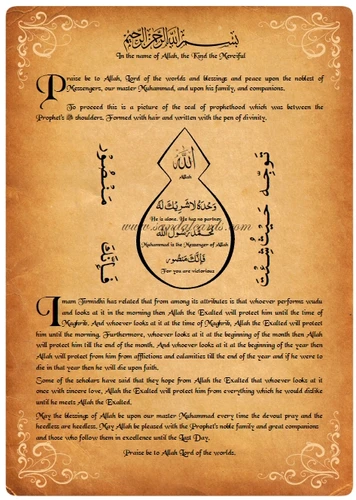 بسم الله الرحمن الرحيم
In the name of Allah, the Kind the Merciful
Praise be to Allah, Lord of the worlds and blessings and peace upon the noblest of
Messengers, our master Muhammad, and upon his family, and companions.
To proceed this is a picture of the seal of prophethood which was between the
Prophet's ﷺ shoulders. Formed with hair and written with the pen of divinity.
الله
Allah
وحده لا شريك له
He is alone, He has no partner
www.sandalcards.com
محمد رسول الله
Muhammad is the Messenger of Allah
فإنك منصور
For you are victorious
توجه حيث شئت
فإنك
منصور
Imam Tirmidhi has related that from among its attributes is that whoever performs wudu
and looks at it in the morning then Allah the Exalted will protect him until the time of
Maghrib. And whoever looks at it at the time of Maghrib, Allah the Exalted will protect
him until the morning. Furthermore, whoever looks at it at the beginning of the month then Allah
will protect him till the end of the month. And whoever looks at it at the beginning of the year then
Allah will protect him from afflictions and calamities till the end of the year and if he were to
die in that year then he will die upon faith.
Some of the scholars have said that they hope from Allah the Exalted that whoever looks at it
once with sincere love, Allah the Exalted will protect him from everything which he would dislike
until he meets Allah the Exalted.
May the blessings of Allah be upon our master Muhammad every time the devout pray and the
heedless are heedless. May Allah be pleased with the Prophet's noble family and great companions
and those who follow them in excellence until the Last Day.
Praise be to Allah Lord of the worlds.